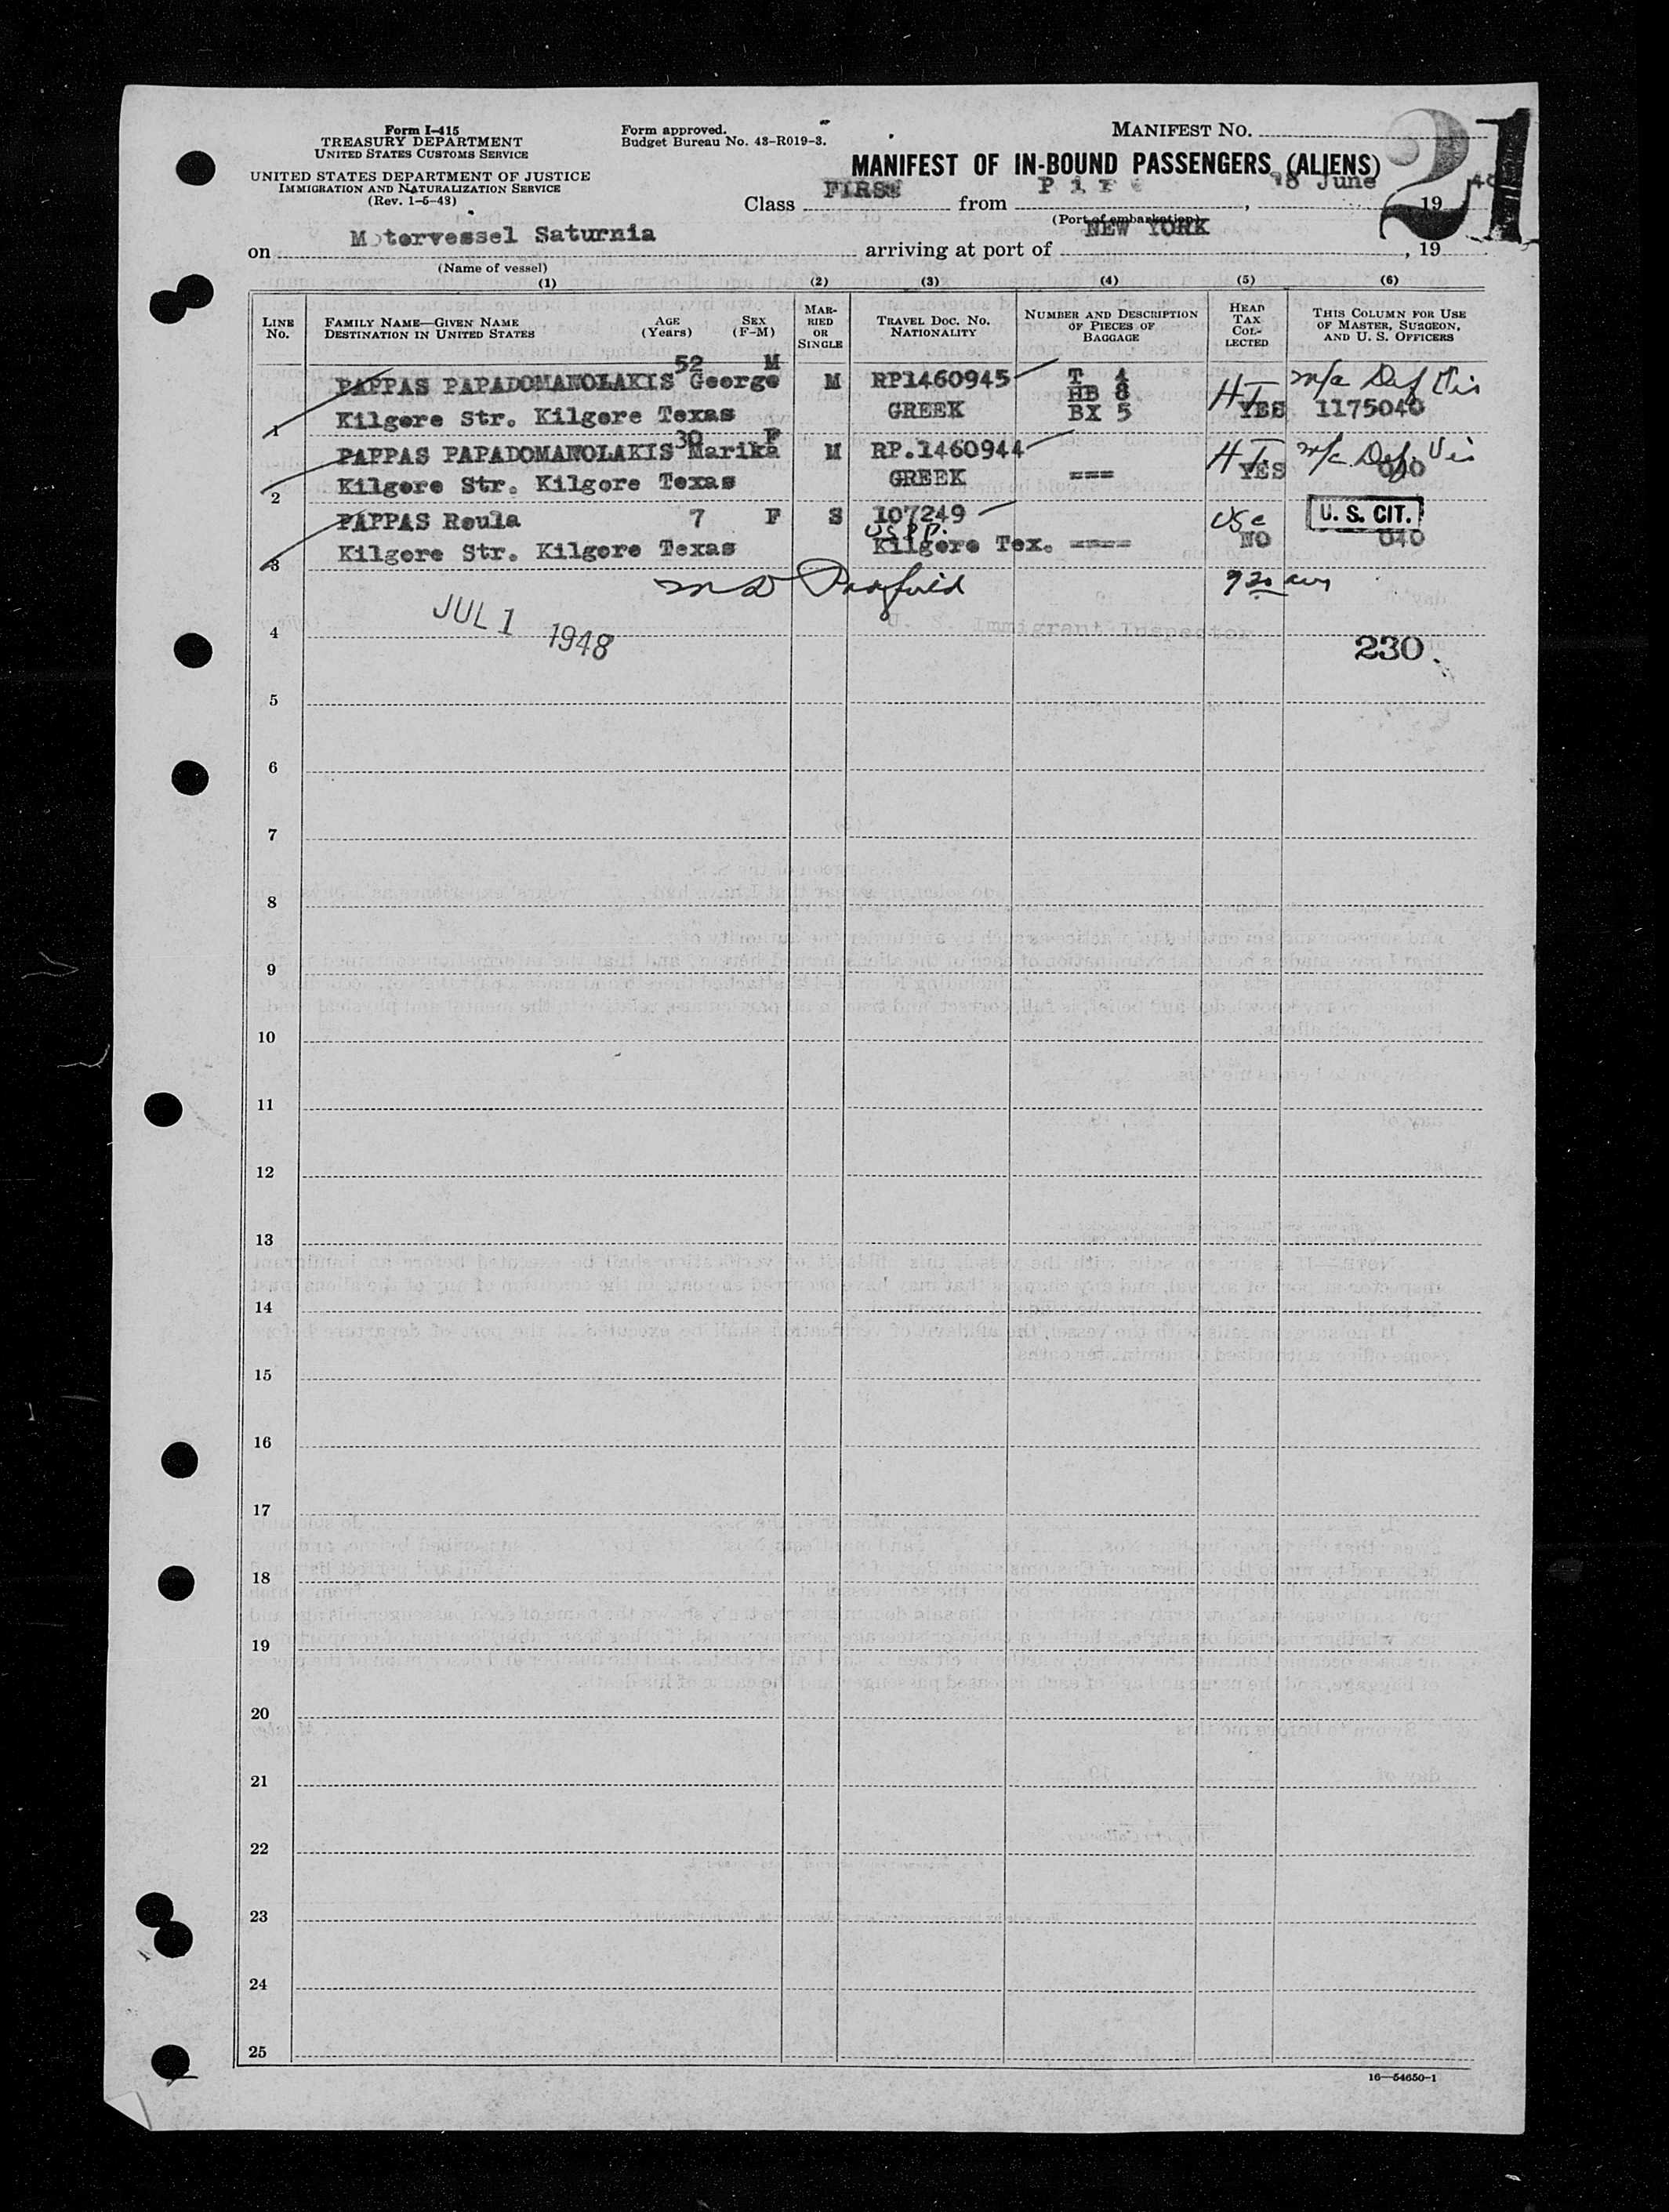 Form I-415
TREASURY DEPARTMENT
UNITED STATES CUSTOMS SERVICE
UNITED STATES DEPARTMENT OF JUSTICE
IMMIGRATION AND NATURALIZATION SERVICE
(Rev. 1-5-43)
Form approved.
Budget Bureau No. 43-R019-3.
MANIFEST NO.
21
MANIFEST OF IN-BOUND PASSENGERS (ALIENS)
Class FIRST from , June 19
(Port of embarkation)
on Motorvessel Saturnia arriving at port of NEW YORK , 19
(Name of vessel)
(1) (2) (3) (4) (5) (6)
LINE No. FAMILY NAME—GIVEN NAME DESTINATION IN UNITED STATES AGE (Years) SEX (F-M) MARRIED OR SINGLE TRAVEL DOC. NO. NATIONALITY NUMBER AND DESCRIPTION OF PIECES OF BAGGAGE HEAD TAX COLLECTED THIS COLUMN FOR USE OF MASTER, SURGEON, AND U. S. OFFICERS
52 M
PAPPAS PAPADOMANOLAKIS George M RP1460945 T 4 HT
HB 8
1 Kilgore Str. Kilgore Texas GREEK BX 5 YES 1175040
30 F
PAPPAS PAPADOMANOLAKIS Marika M RP.1460944 HT
2 Kilgore Str. Kilgore Texas GREEK === YES 040
PAPPAS Roula 7 F S 107249 USC U. S. CIT.
US PP.
3 Kilgore Str. Kilgore Texas Kilgore Tex. ==== NO 040
9 20 am
JUL 1 1948
U. S. Immigrant Inspector
4 230
5
6
7
8
9
10
11
12
13
14
15
16
17
18
19
20
21
22
23
24
25
16—54650-1